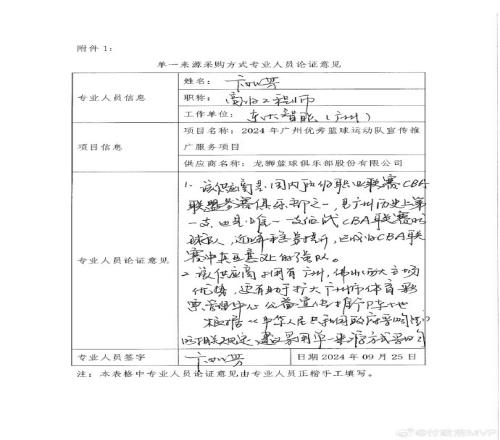 附件 1：
单一来源采购方式专业人员论证意见
专业人员信息
姓名：
职称：高级工程师
工作单位：
项目信息
项目名称：2024 年广州优秀篮球运动队宣传推
广服务项目
供应商名称：龙狮篮球俱乐部股份有限公司
专业人员论证意见
1. 该供应商是国内顶级职业联赛CBA
联盟参赛俱乐部之一，是广州历史上第
一支，也是唯一一支征战CBA联赛的
球队，
赛中
2. 该供应商拥有广州、佛山两大主场
优势，还有助于扩大广州市体育彩
票管理中心公益宣传推广
根据《中华人民共和国政府采购法》
的相关规定，建议采用单一来源方式采购
专业人员签字
日期 2024 年 09 月 25 日
注：本表格中专业人员论证意见由专业人员正楷手工填写。